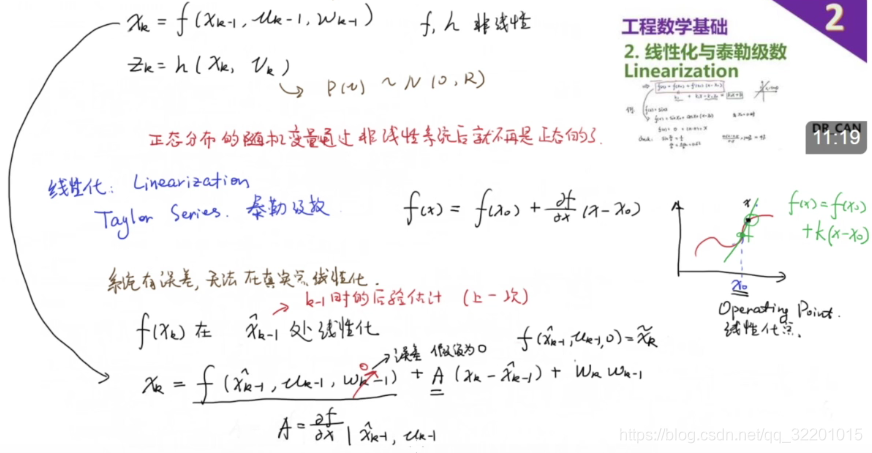 x_k = f(x_{k-1}, u_{k-1}, w_{k-1})    f, h 非线性
z_k = h(x_k, v_k)
P(v) ~ N(0, R)
正态分布的随机变量通过非线性系统后就不再是正态的了.
线性化: Linearization
Taylor Series. 泰勒级数
f(x) = f(x_0) + ∂f/∂x (x - x_0)
系统有误差, 无法在真实点线性化.
k-1时的后验估计 (上一次)
f(x_k) 在 x̂_{k-1} 处线性化
f(x̂_{k-1}, u_{k-1}, 0) = x̃_k
0 误差 假设为0
x_k = f(x̂_{k-1}, u_{k-1}, w_{k-1}) + A (x_k - x̂_{k-1}) + W_k w_{k-1}
A = ∂f/∂x | x̂_{k-1}, u_{k-1}
工程数学基础
2
2. 线性化与泰勒级数
Linearization
DR_CAN
11:19
x
f(x) = f(x_0)
+ k(x - x_0)
x_0
Operating Point.
线性化点.
https://blog.csdn.net/qq_32201015